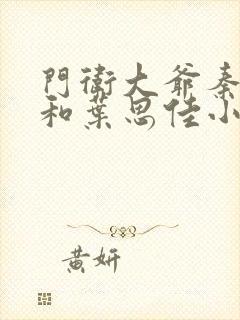 門衛大爺秦
和葉思佳小
黃妍